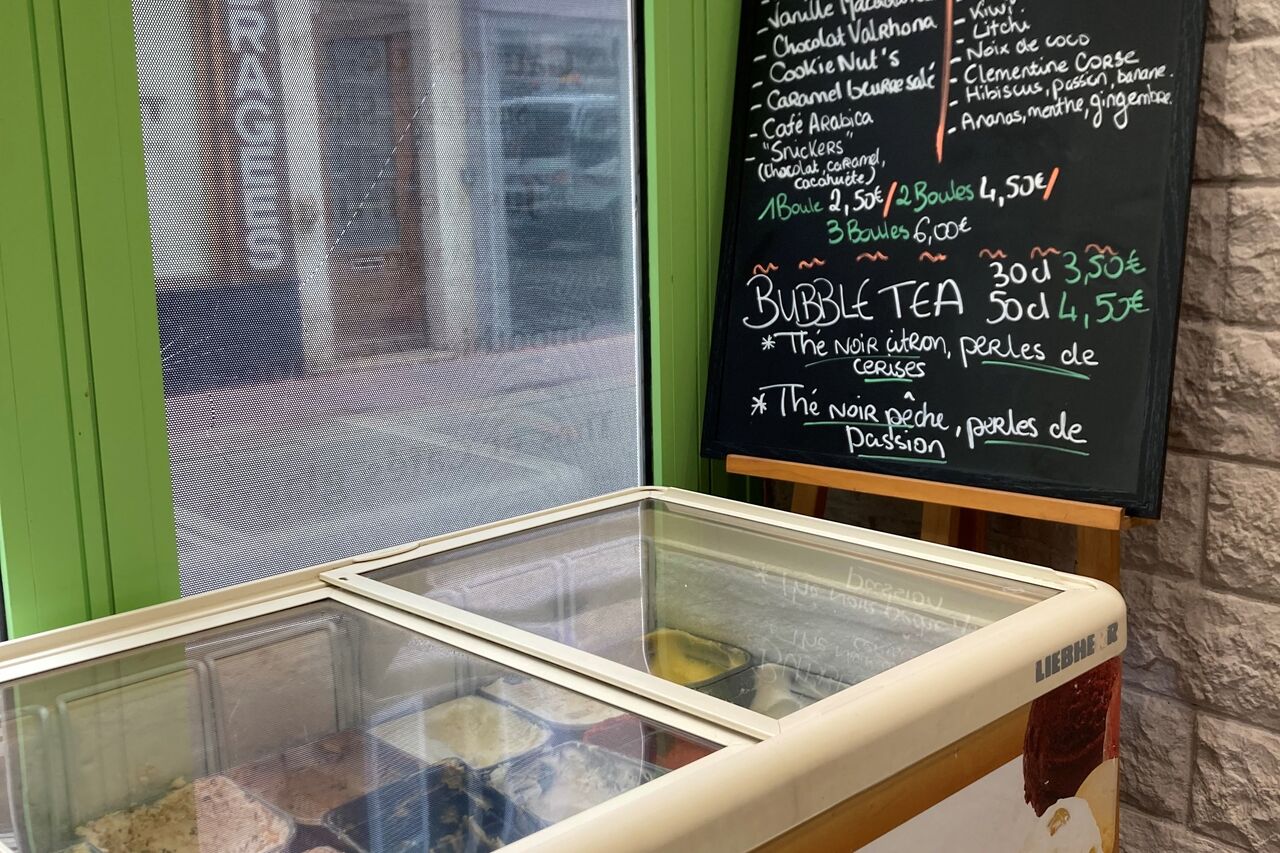 - Vanille Macadamia
- Chocolat Valrhona
- Cookie Nut's
- Caramel beurre salé
- Café Arabica
- "Snickers"
(chocolat, caramel,
cacahuète)
- Kiwi
- Litchi
- Noix de coco
- Clementine CORSE
- Hibiscus, passion, banane.
- Ananas, menthe, gingembre.
1 Boule 2,50€ / 2 Boules 4,50€ /
3 Boules 6,00€
BUBBLE TEA 30cl 3,50€
50cl 4,50€
* Thé NOIR citron, perles de
cerises
* Thé NOIR pêche, perles de
Passion
LIEBHERR